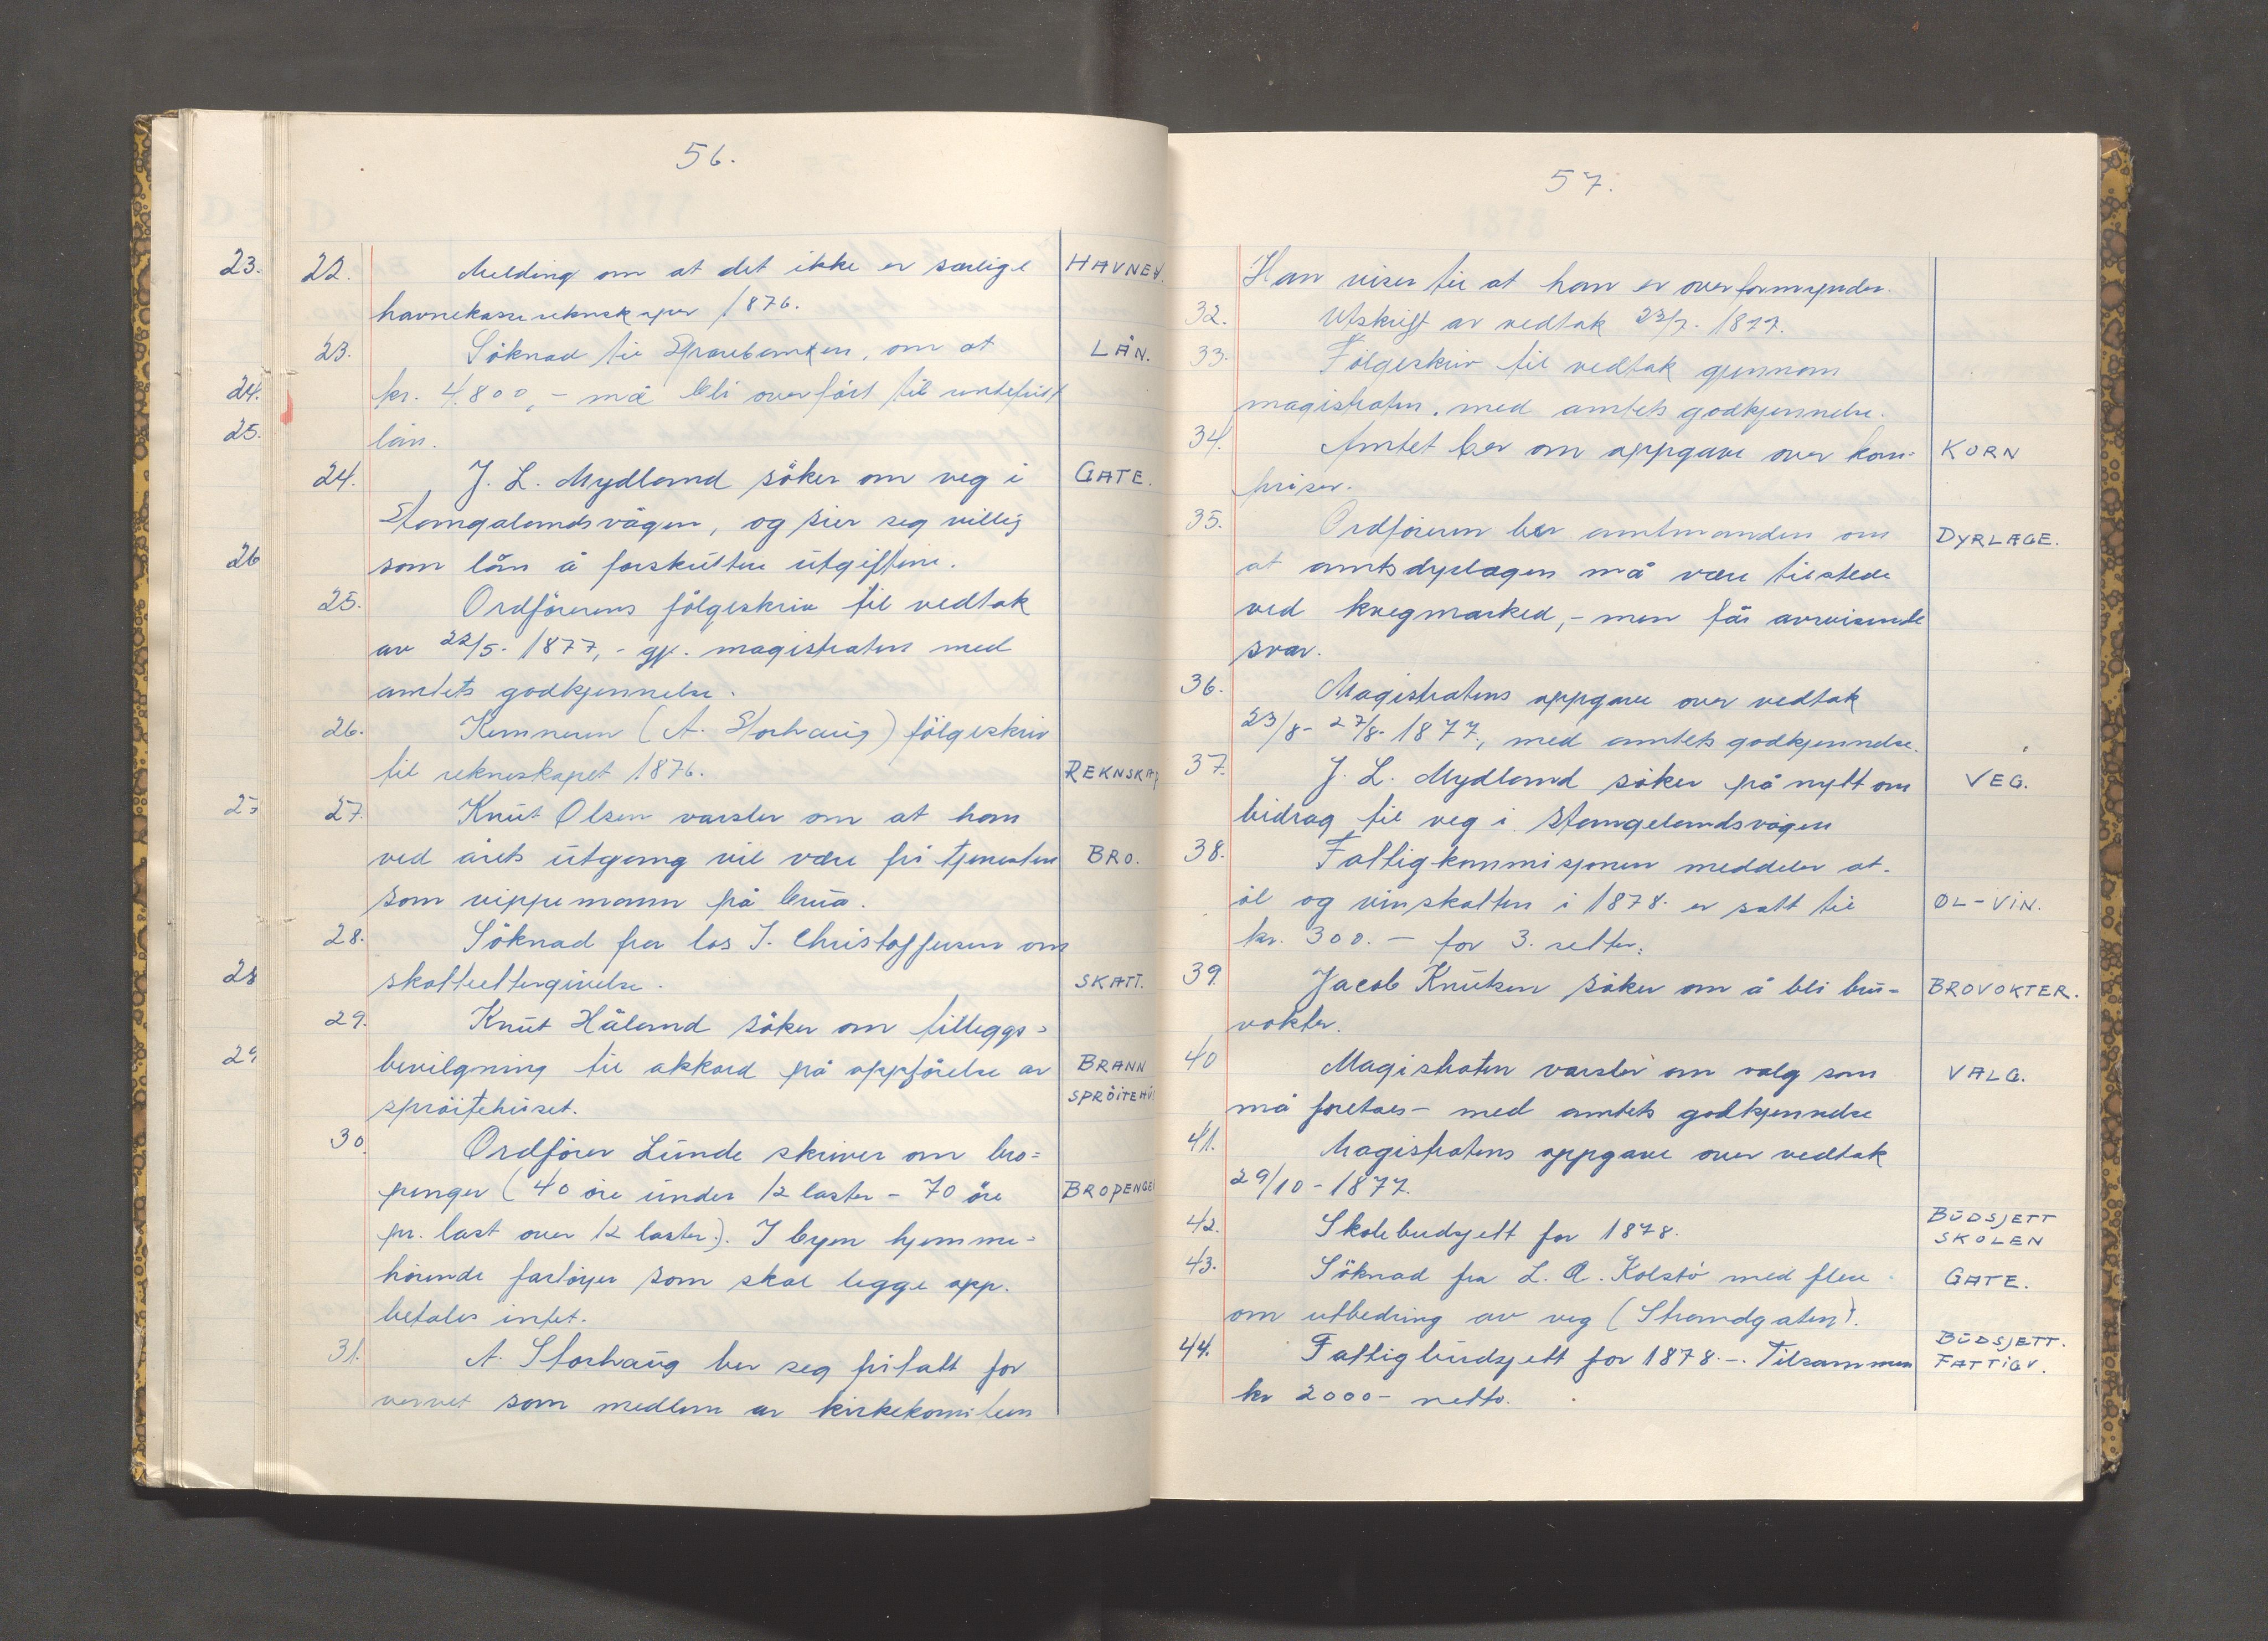 56.
23. 22. Melding om at det ikke er særlige HAVNEV.
havnekasserekneskaper 1876.
23. Söknad til Sparebanken, om at LÅN.
24. kr. 4.800,- må bli overfört til rentefritt
25. lån.
24. J. L. Mydland söker om veg i GATE.
Stangalandsvågen, og sier seg villig
26 som lån å forskuttere utgiftene.
25. Ordförerens fölgeskriv til vedtak
av 22/5. 1877,- gj. magistraten med
amtets godkjennelse.
26. Kemneren (A. Storhaug) fölgeskriv
til rekneskapet 1876. REKNSKAP
27 27. Knut Olsen varsler om at han
ved årets utgang vil være fri tjenesten BRO.
som vippemann på brua.
28. Söknad fra los J. Christoffersen om
28 skatteettergivelse. SKATT.
29. Knut Håland söker om tilleggs=
29 bevilgning til akkord på oppförelse av BRANN
spröitehuset. SPRÖITEHUS
30. Ordförer Lunde skriver om bro=
penger (40 öre under 12 laster - 70 öre BROPENGE
pr. last over 12 laster). I byen hjemme=
hörende fartöyer som skal legge opp.
betales intet.
31. A. Storhaug ber seg fritatt for
vervet som medlem av kirkekomiteen
57.
Han viser til at han er overformynder.
32. Utskrift av vedtak 23/7. 1877.
33. Fölgeskriv til vedtak gjennom
magistraten, med amtets godkjennelse.
34. Amtet ber om oppgave over korn= KORN
priser.
35. Ordföreren ber amtmanden om DYRLÆGE.
at amtsdyrlægen må være tilstede
ved kvegmarked,- men får avvisende
svar.
36. Magistratens oppgave over vedtak
23/8- 27/8- 1877, med amtets godkjennelse.
37. J. L. Mydland söker på nytt om VEG.
bidrag til veg i Stangelandsvågen
38. Fattigkommisjonen meddeler at.
öl og vinskatten i 1878. er satt til ÖL-VIN.
kr. 300.- for 3. retter.
39. Jacob Knutsen söker om å bli bru= BROVOKTER.
vokter.
40 Magistraten varsler om valg som VALG.
må foretaes - med amtets godkjennelse
41. Magistratens oppgave over vedtak
29/10 - 1877.
42. Skolebudsjett for 1878. BUDSJETT SKOLEN
43. Söknad fra L. A. Kolstö med flere GATE.
om utbedring av veg (Strandgaten).
44. Fattigbudsjett for 1878.-. Tilsammen BUDSJETT. FATTIGV.
kr 2000- netto.